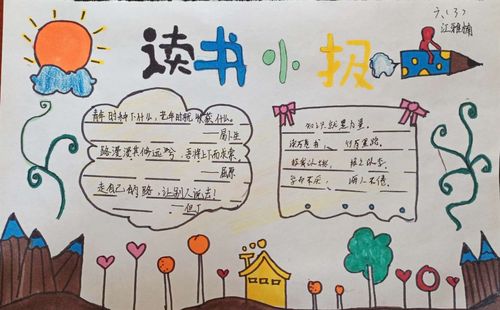 六（3）
江雅楠
读书小报
青年时种下什么，老年时就收获什么。
——易卜生
路漫漫其修远兮，吾将上下而求索。
——屈原
走自己的路，让别人说去！
——但丁
知识就是力量。
读万卷书，行万里路。
学而不厌，诲人不倦。